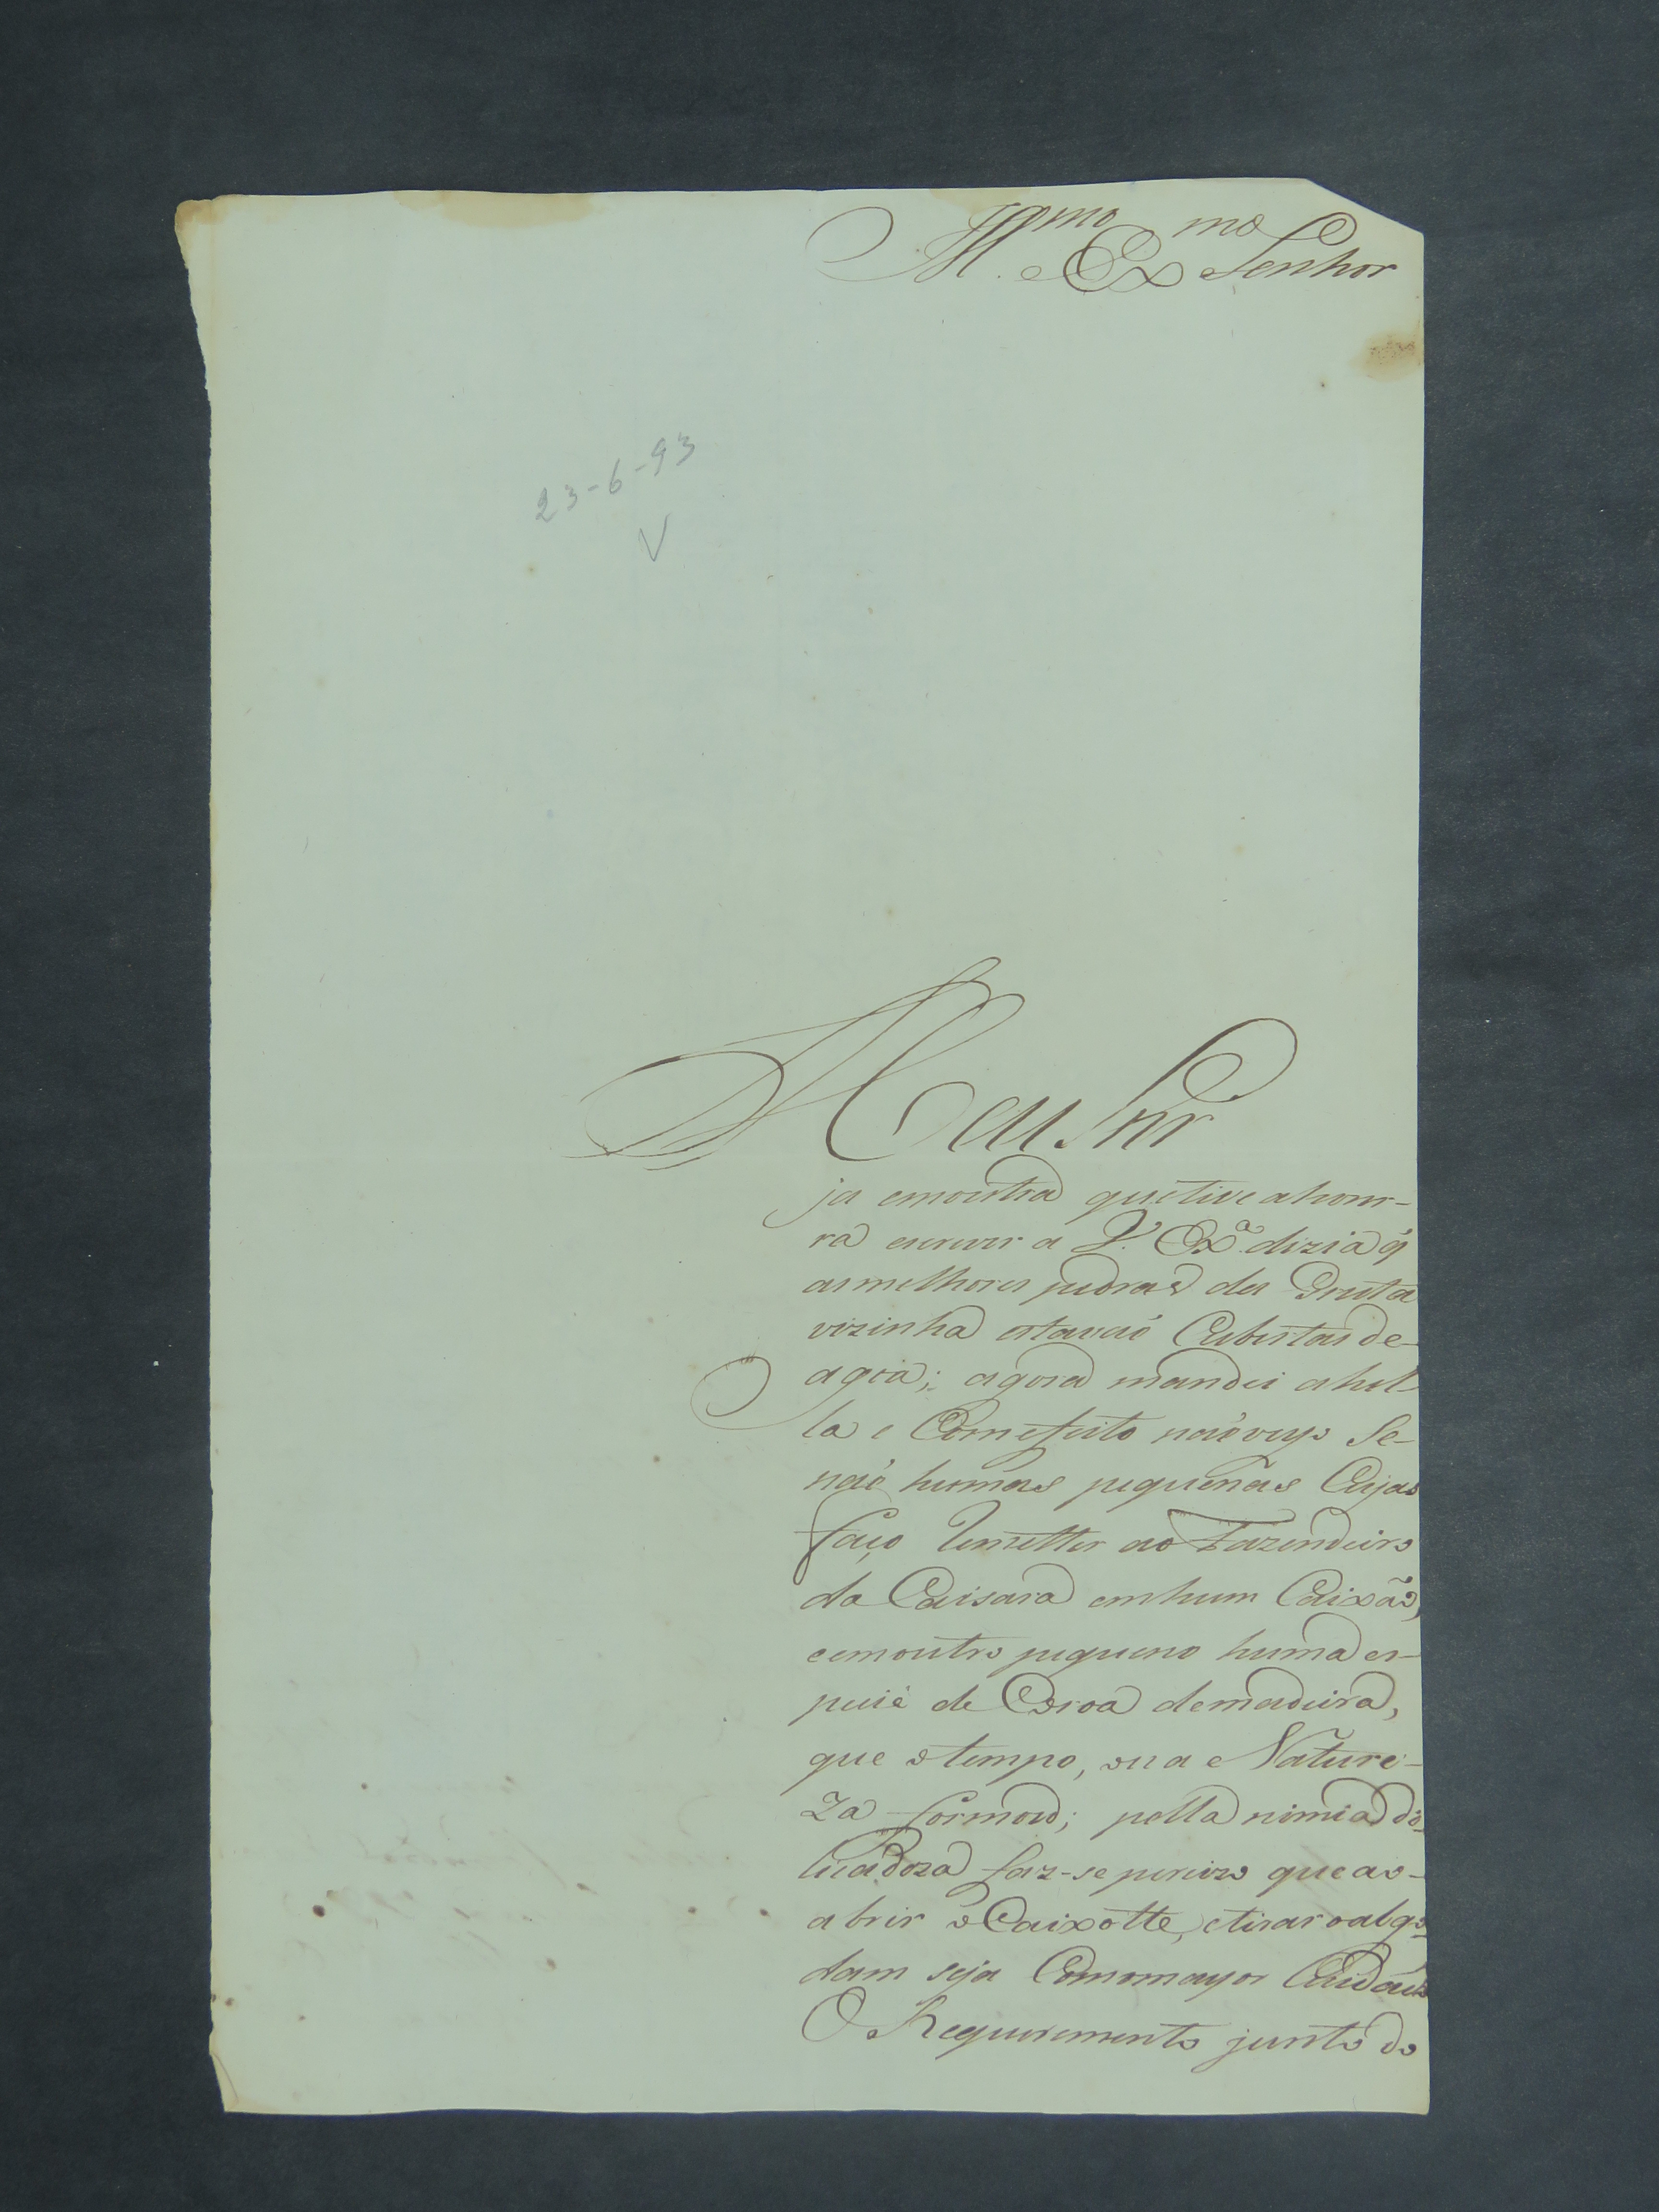 Ill.mo e Ex.mo Senhor
23-6-93
V
Meu Snr
ja emoutra que tive ahonr-
ra escrever a V. Ex.ª dizia q̃
asmelhores pedras da Gruta
vizinha estavaó Cubertas de-
agoa; agora mandei ahil-
la e Comefeito naóveyo Se-
naó humas piquenas Cujas
faço Remetter ao Fazendeiro
da Caisara emhum Caixaõ,
eemoutro piqueno huma es-
pecie de Coroa demadeira,
que otempo, oua Nature-
za formou; pella nimia di-
licadeza faz-se percizo que ao-
abrir o Caixotte, etirar oalgo-
dam seja Comomayor Cuidado
O Requerimento junto do